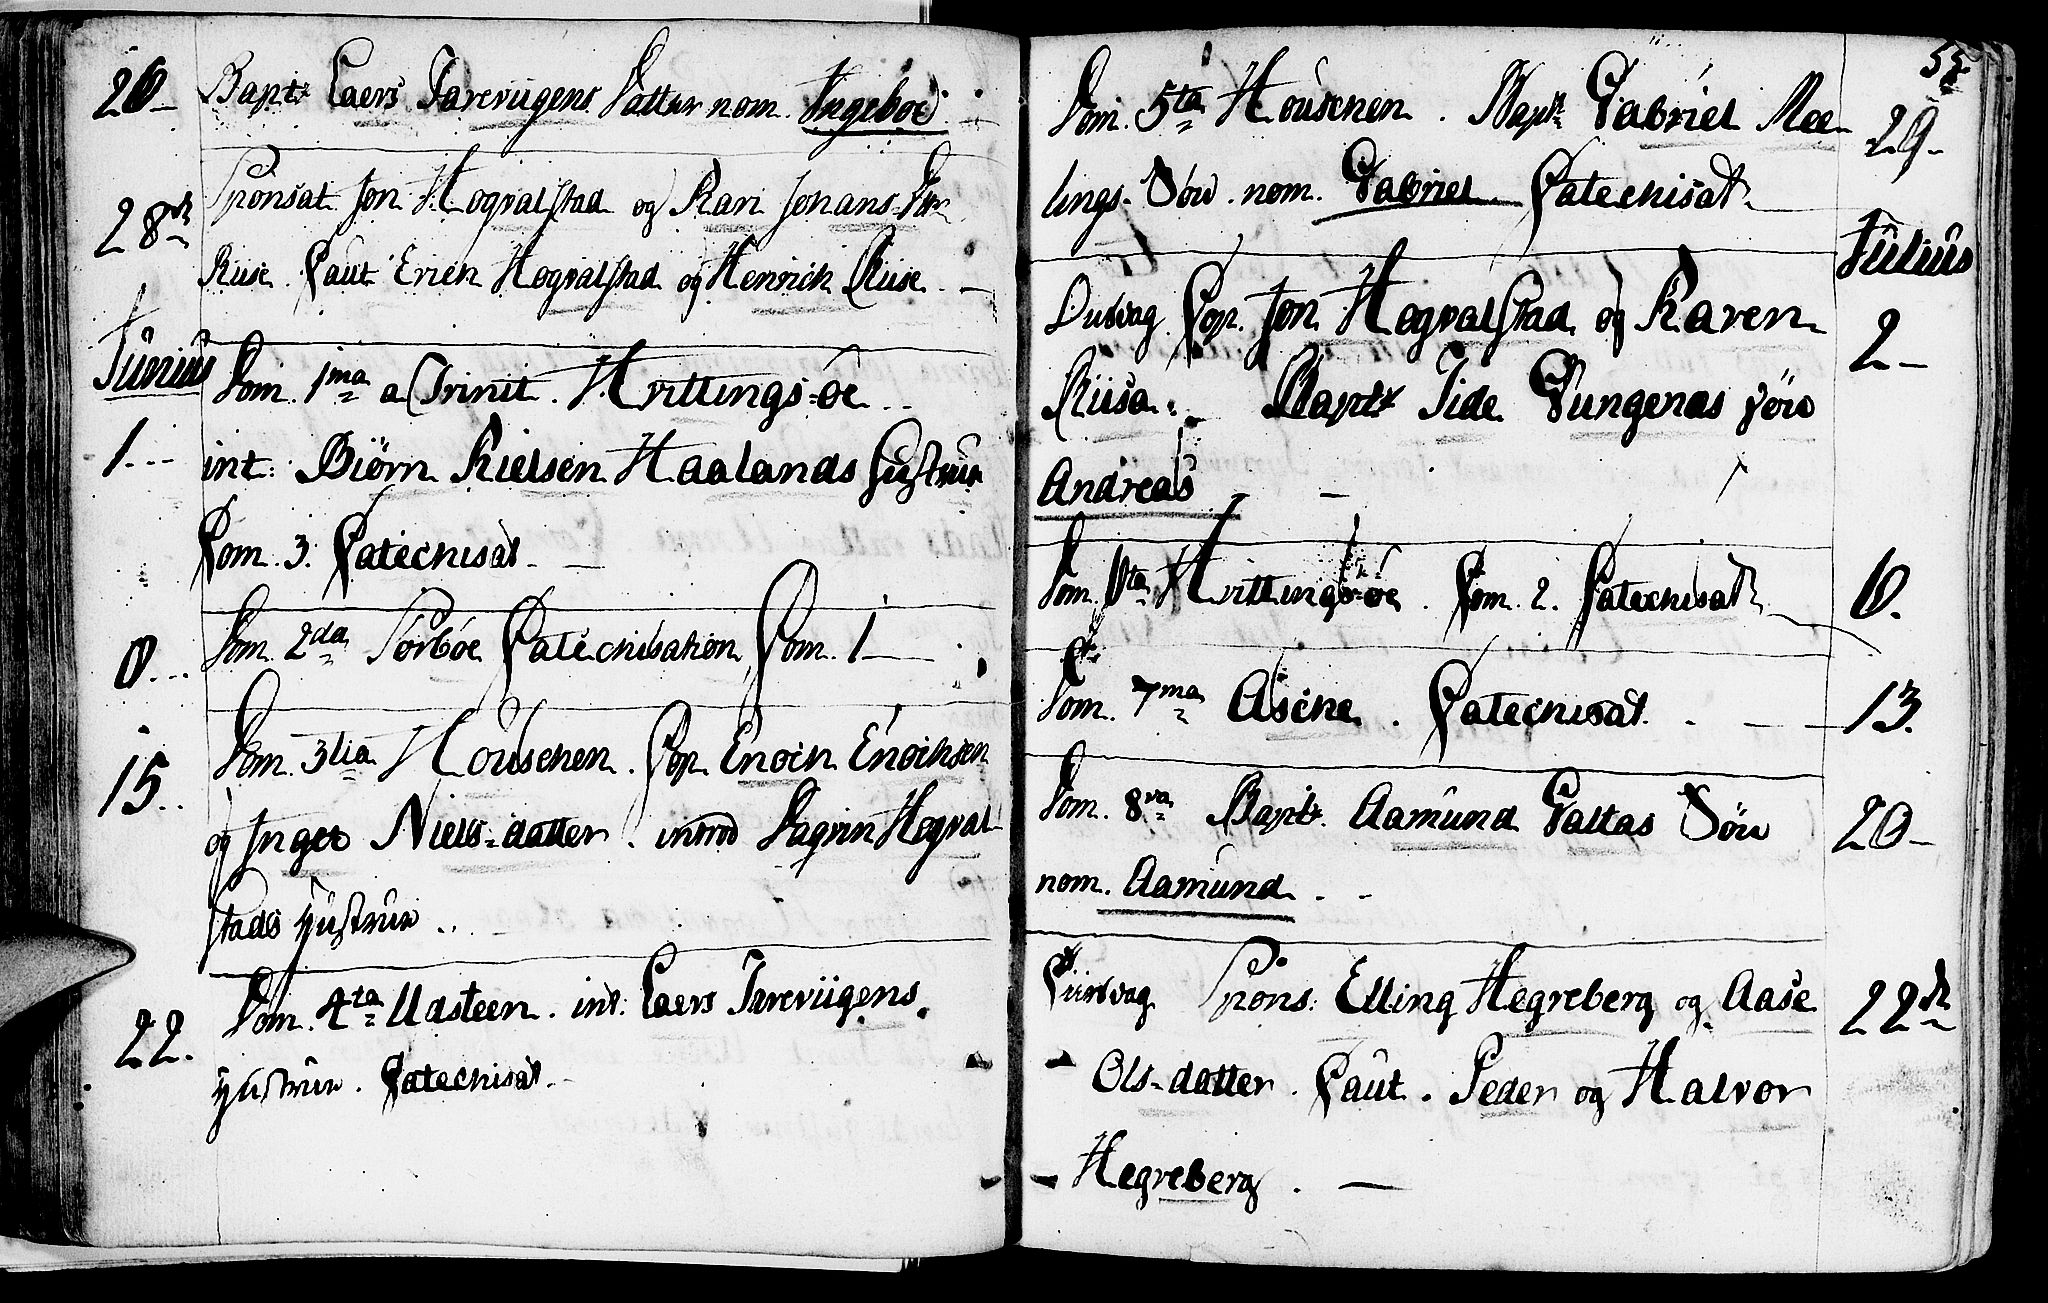 26- Bapt: Laers Jareviigens Datter nom. Ingeboe.
28de Sponsat Jon Hogvalstad og Kari Johans Dtr
Riise. Caut Erich Hogvalstad og Henrich Riise. -
Junius Dom. 1ma a Trinit. Hvittings-øe
1... int: Biörn Nielsen Haalands Hustrue
Com. 3. Catechisat -
8... Dom. 2da Sörbøe Catechisation Com. 1
15.. Dom. 3tia Houschen. Cop. Enoch Enochsen
og Inger Niels-datter. introd Dagrin Hegval
stads Hustrue ..
22. Dom. 4ta Udsteen. int: Laers Jareviigens
Hustrue. Catechisat.
55
Dom. 5ta Houschen. Bapt: Gabriel Mee- 29-
lings-Sön. nom. Gabriel. Catechisat
Julius
Onsdag Cop. Jon Hogvalstad og Karen 2-
Riisa. Bapt: Tide Tungenæs Sön
Andreas -
Dom. 6ta Hvittings-øe. Com. 2. Catechisat 6.
Dom. 7ma Asche. Catechisat. - 13.
Dom. 8va Bapt: Aamund Galtas Sön 20-
nom. Aamund. -
Tiirsdag Spons: Elling Hegreberg og Aase 22de
Ols-datter. Caut. Peder og Halvor
Hegreberg. -